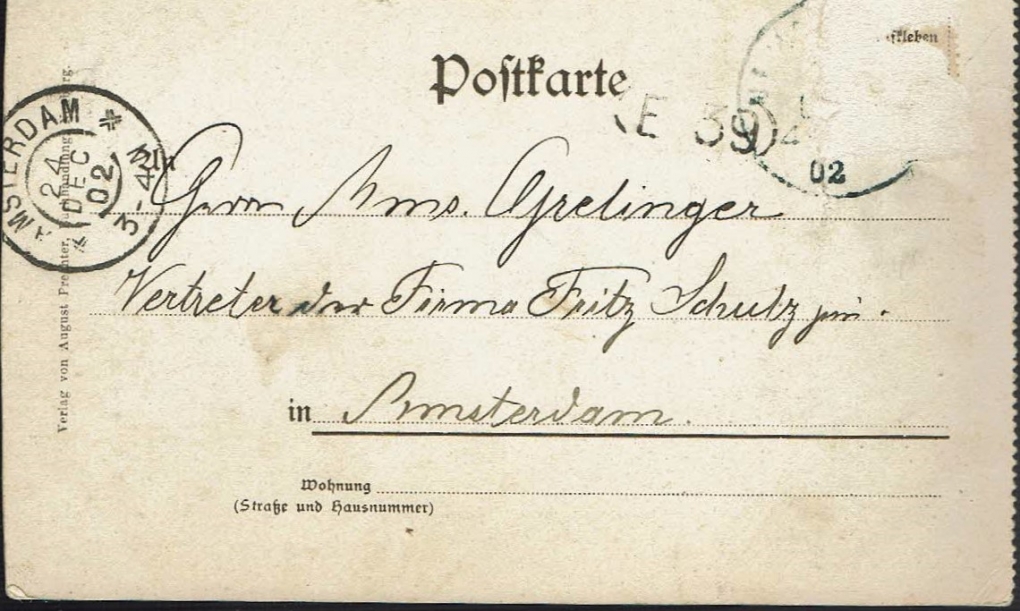 Postkarte
kleben
E 39
02
AMSTERDAM
24
DEC
02
3-4N
An
Herrn Ams. Grelinger
Vertreter der Firma Fritz Schulz jun.
in Amsterdam.
Wohnung
(Straße und Hausnummer)
Verlag von August